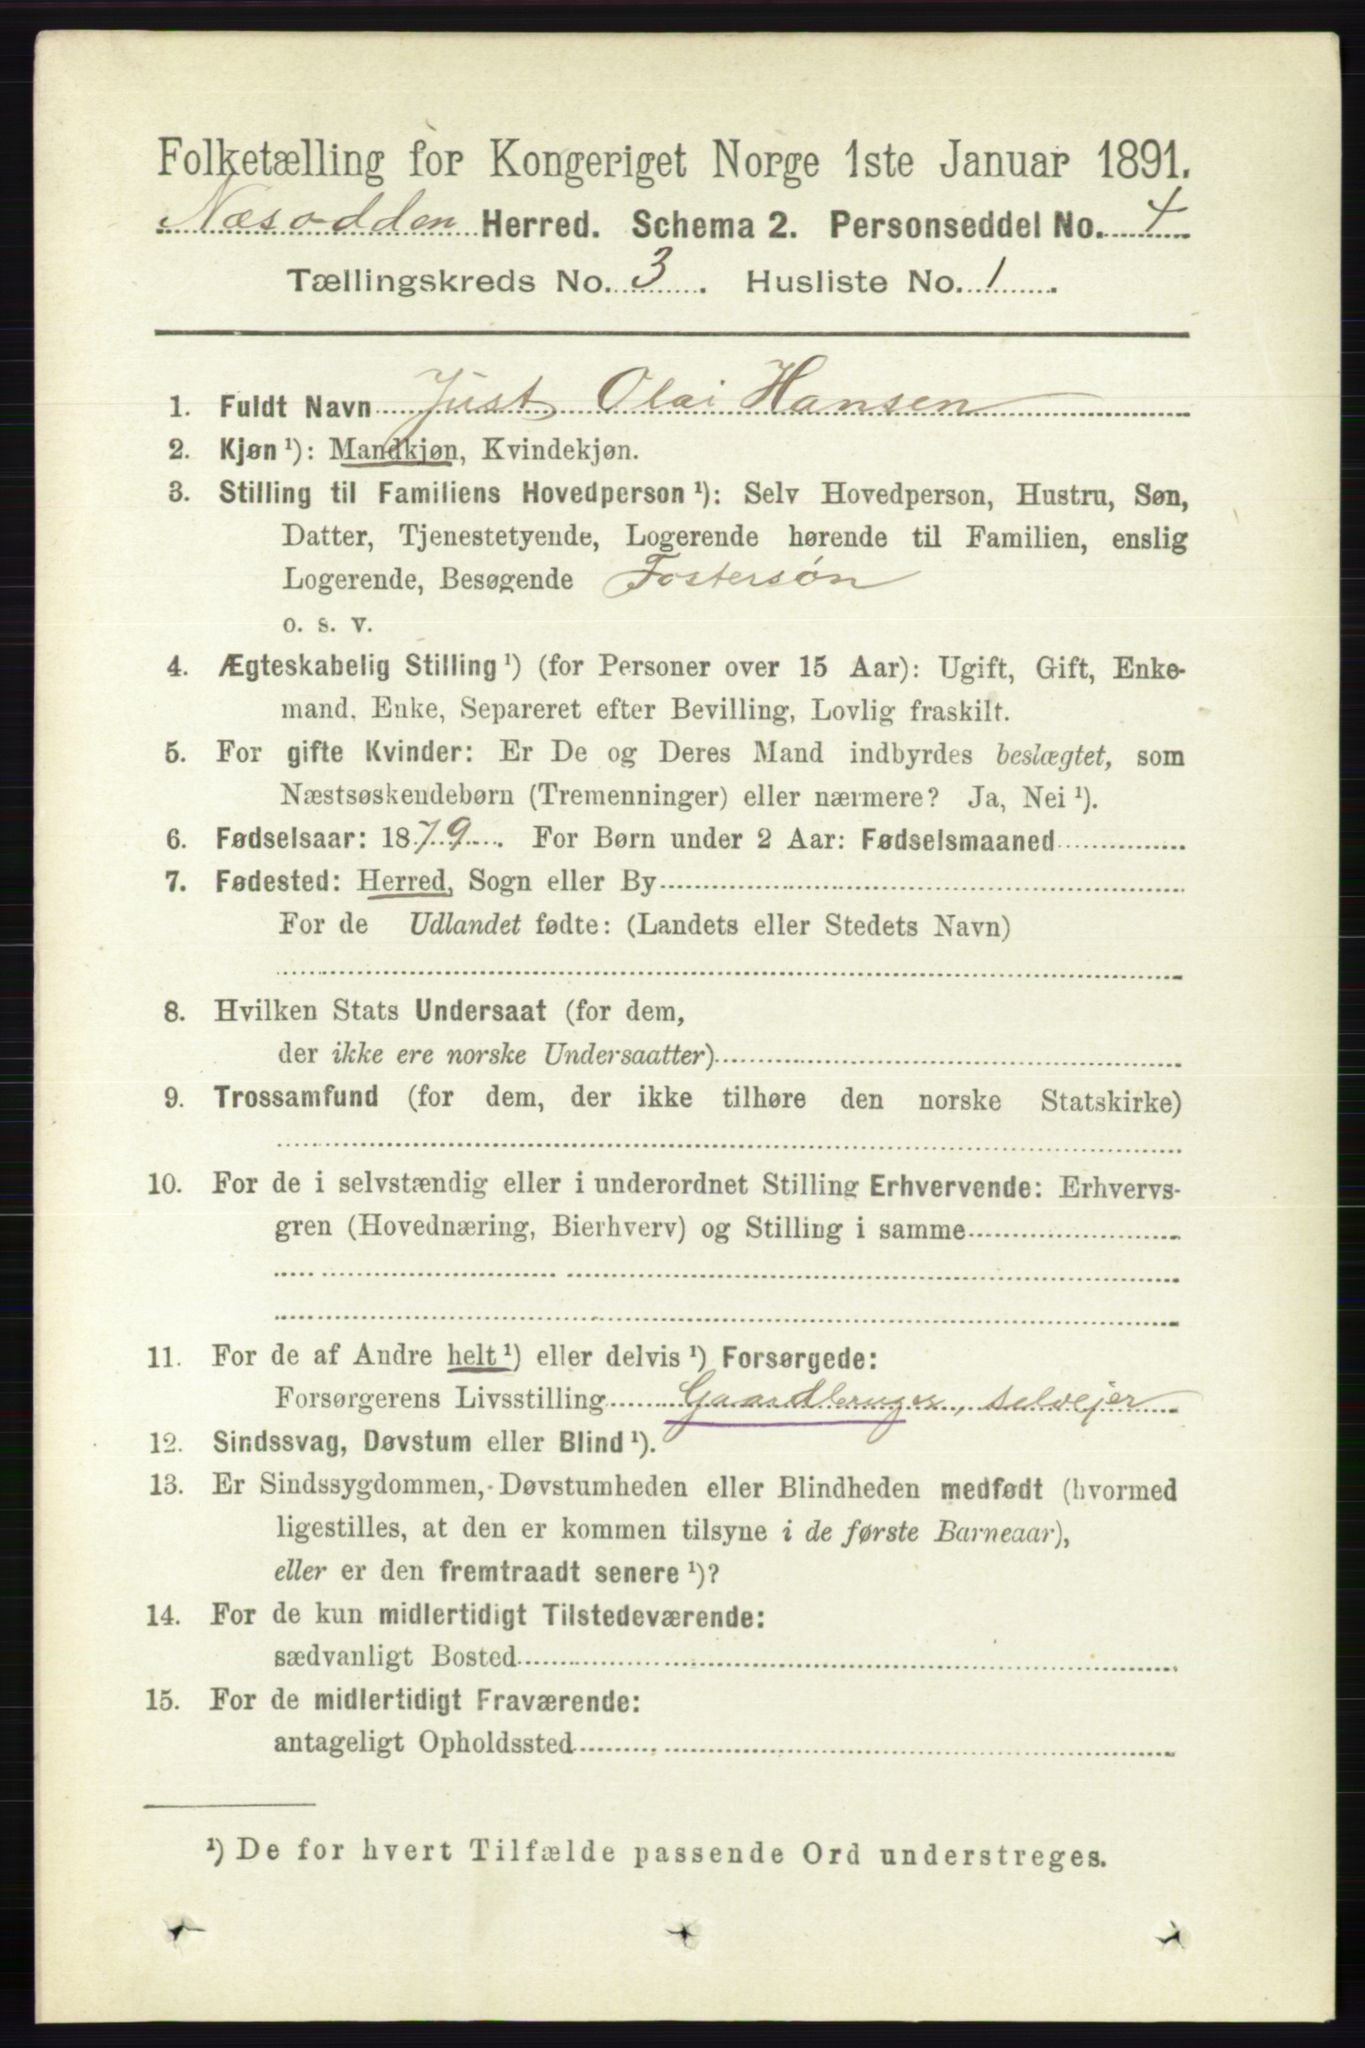 Folketælling for Kongeriget Norge 1ste Januar 1891.
Næsodden Herred. Schema 2. Personseddel No. 4
Tællingskreds No. 3. Husliste No. 1.
1. Fuldt Navn Just Olai Hansen
2. Kjøn ¹): Mandkjøn, Kvindekjøn.
3. Stilling til Familiens Hovedperson ¹): Selv Hovedperson, Hustru, Søn,
Datter, Tjenestetyende, Logerende hørende til Familien, enslig
Logerende, Besøgende Fostersøn
o. s. v.
4. Ægteskabelig Stilling ¹) (for Personer over 15 Aar): Ugift, Gift, Enke-
mand, Enke, Separeret efter Bevilling, Lovlig fraskilt.
5. For gifte Kvinder: Er De og Deres Mand indbyrdes beslægtet, som
Næstsøskendebørn (Tremenninger) eller nærmere? Ja, Nei ¹).
6. Fødselsaar: 1879. For Børn under 2 Aar: Fødselsmaaned
7. Fødested: Herred, Sogn eller By
For de Udlandet fødte: (Landets eller Stedets Navn)
8. Hvilken Stats Undersaat (for dem,
der ikke ere norske Undersaatter)
9. Trossamfund (for dem, der ikke tilhøre den norske Statskirke)
10. For de i selvstændig eller i underordnet Stilling Erhvervende: Erhvervs-
gren (Hovednæring, Bierhverv) og Stilling i samme
11. For de af Andre helt ¹) eller delvis ¹) Forsørgede:
Forsørgerens Livsstilling Gaardbruger, selvejer
12. Sindssvag, Døvstum eller Blind ¹).
13. Er Sindssygdommen, Døvstumheden eller Blindheden medfødt (hvormed
ligestilles, at den er kommen tilsyne i de første Barneaar),
eller er den fremtraadt senere ¹)?
14. For de kun midlertidigt Tilstedeværende:
sædvanligt Bosted
15. For de midlertidigt Fraværende:
antageligt Opholdssted
¹) De for hvert Tilfælde passende Ord understreges.